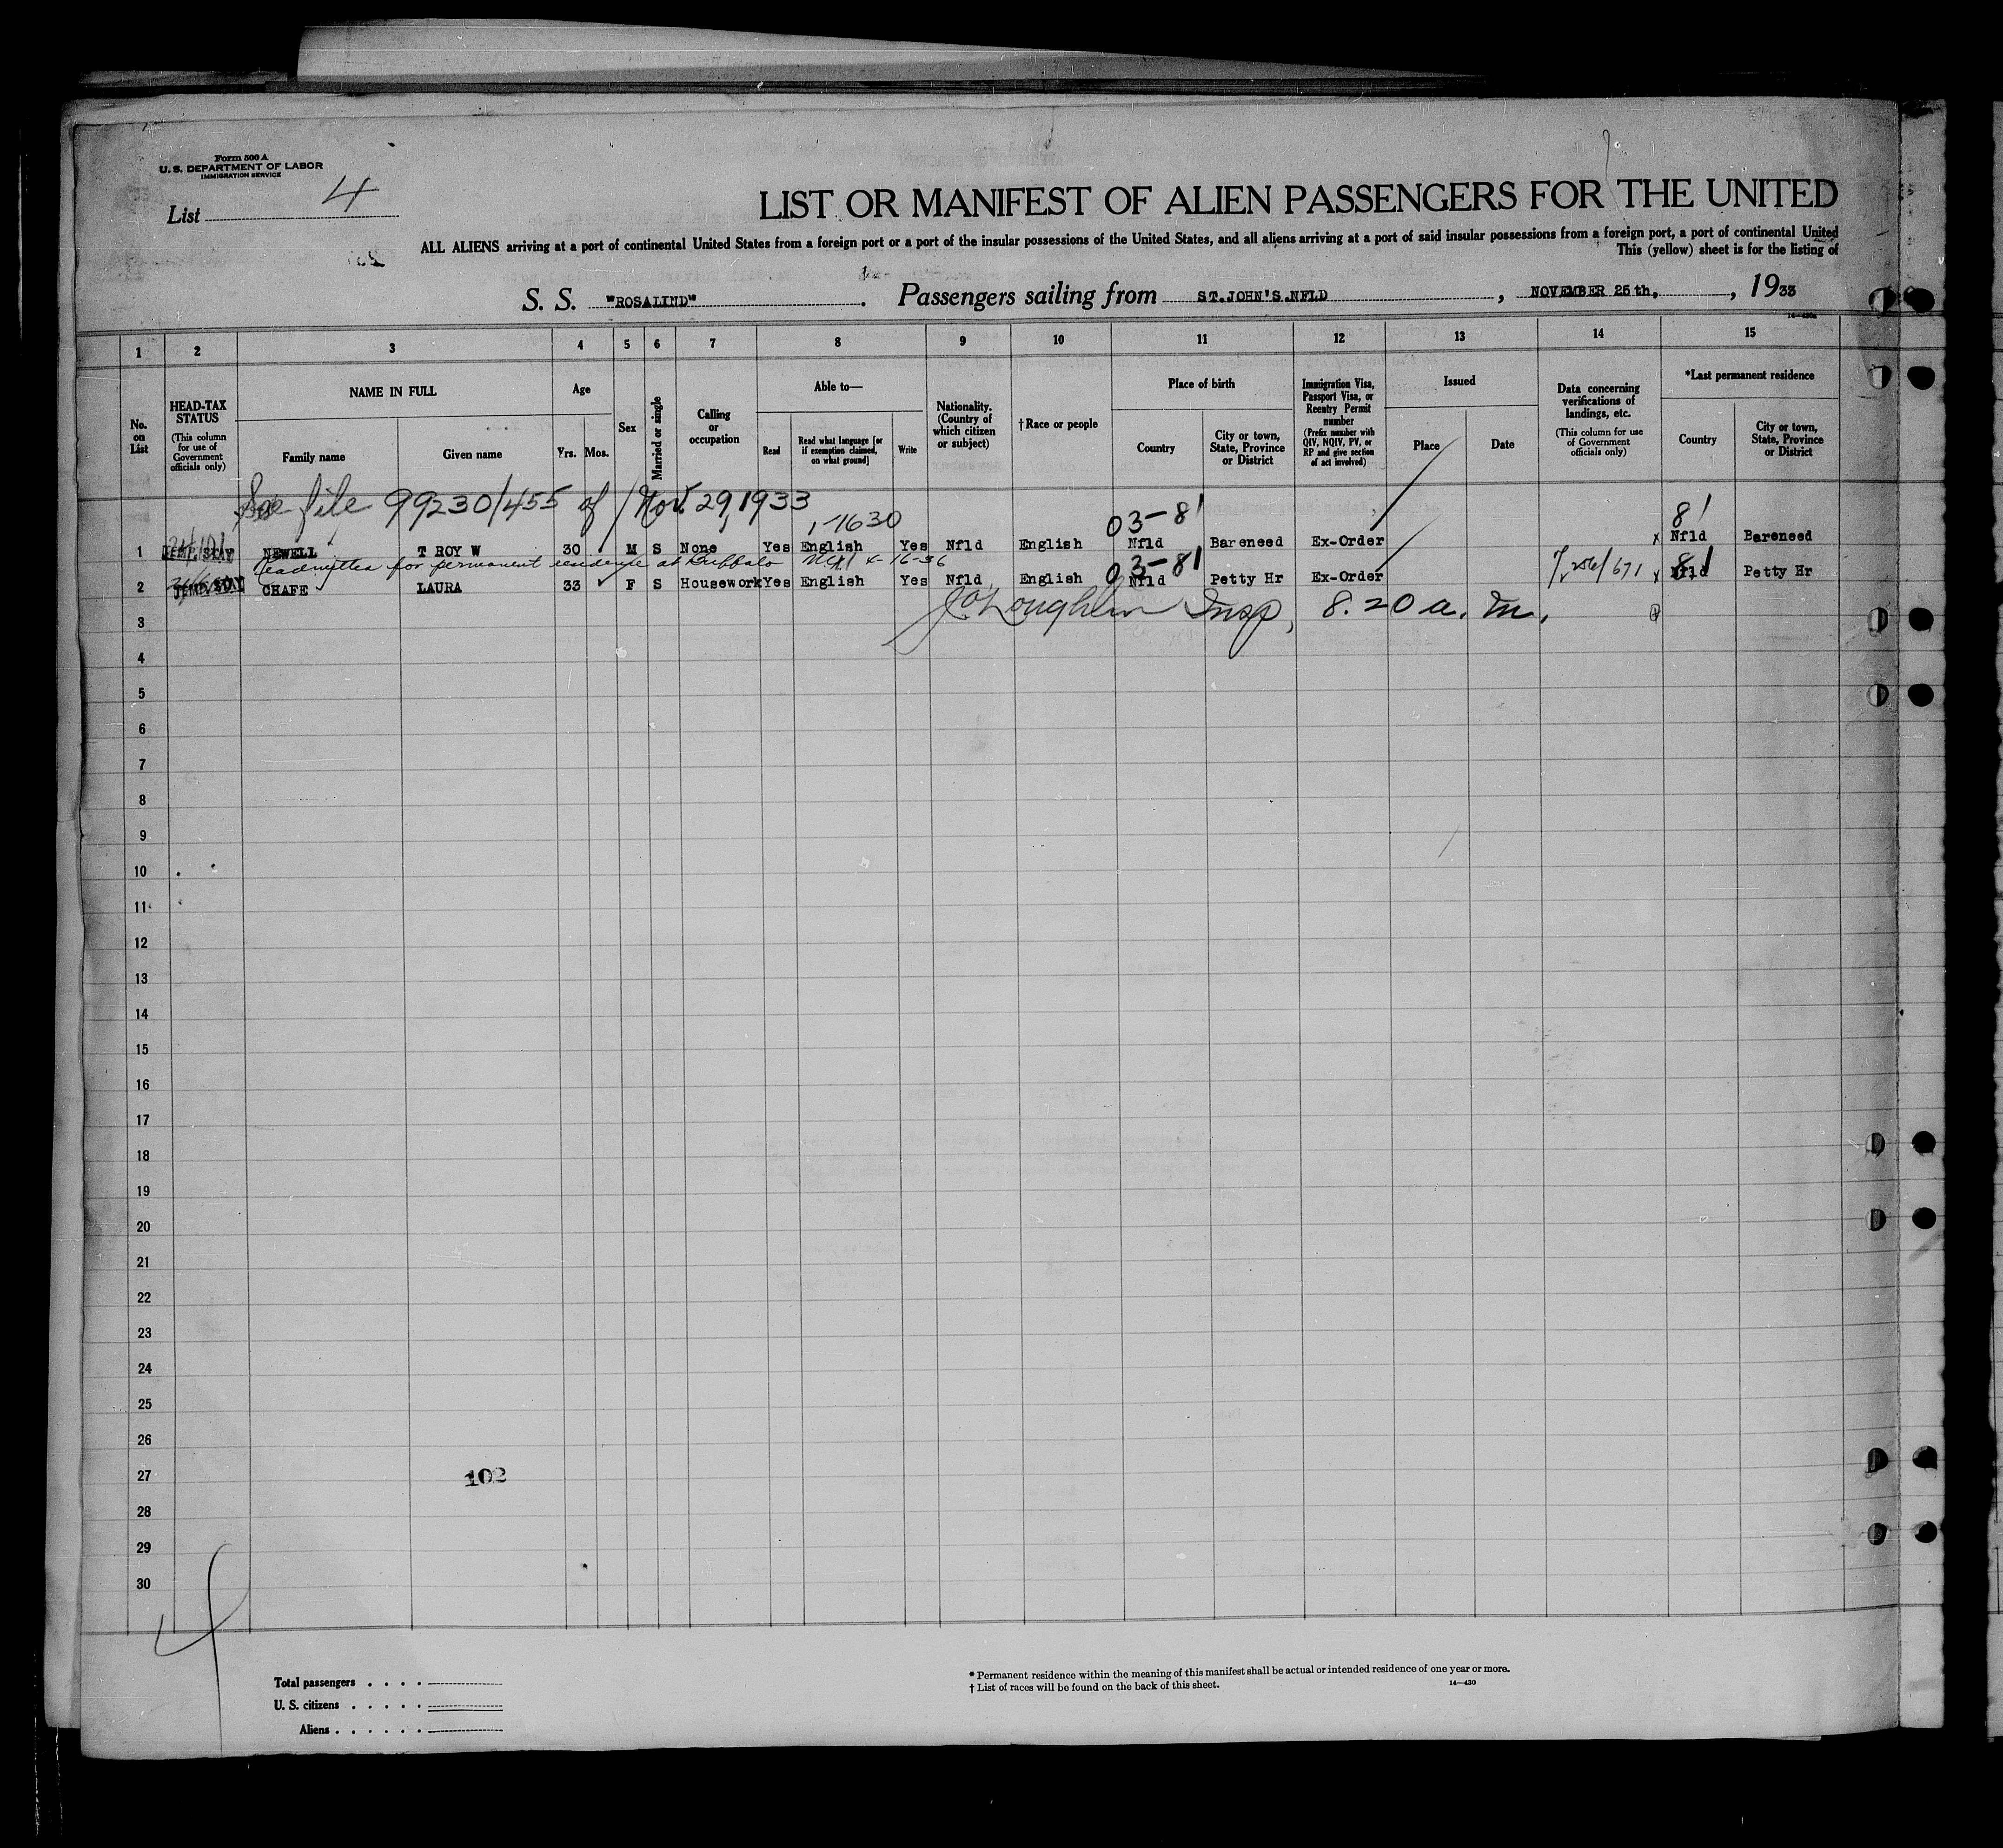 Form 500 A
U. S. DEPARTMENT OF LABOR
IMMIGRATION SERVICE
List 4
LIST OR MANIFEST OF ALIEN PASSENGERS FOR THE UNITED
ALL ALIENS arriving at a port of continental United States from a foreign port or a port of the insular possessions of the United States, and all aliens arriving at a port of said insular possessions from a foreign port, a port of continental United
This (yellow) sheet is for the listing of
S. S. "ROSALIND". Passengers sailing from ST.JOHN'S.NFLD, NOVEMBER 25th, , 1933
1 2 3 4 5 6 7 8 9 10 11 12 13 14 15
No. on List
HEAD-TAX STATUS (This column for use of Government officials only)
NAME IN FULL
Family name
Given name
Age
Yrs. Mos.
Sex
Married or single
Calling or occupation
Able to—
Read
Read what language [or if exemption claimed, on what ground]
Write
Nationality. (Country of which citizen or subject)
†Race or people
Place of birth
Country
City or town, State, Province or District
Immigration Visa, Passport Visa, or Reentry Permit number (Prefix number with QIV, NQIV, PV, or RP and give section of act involved)
Issued
Place
Date
Data concerning verifications of landings, etc. (This column for use of Government officials only)
*Last permanent residence
Country
City or town, State, Province or District
See file 99230/455 of Nov. 29, 1933
1-1630 03-81 81
1 TEMP. STAY NEWELL T ROY W 30 M S None Yes English Yes Nfld English Nfld Bareneed Ex-Order x Nfld Bareneed
Readmitted for permanent residence at Buffalo 4-16-36 03-81 81
2 CHAFE LAURA 33 F S Housework Yes English Yes Nfld English Nfld Petty Hr Ex-Order x Nfld Petty Hr
3 J O'Loughlin Insp, 8.20 a. m.
4
5
6
7
8
9
10
11
12
13
14
15
16
17
18
19
20
21
22
23
24
25
26
27 102
28
29
30
4
Total passengers . . . .
U. S. citizens . . . . .
Aliens . . . . . .
* Permanent residence within the meaning of this manifest shall be actual or intended residence of one year or more.
† List of races will be found on the back of this sheet.
14—430